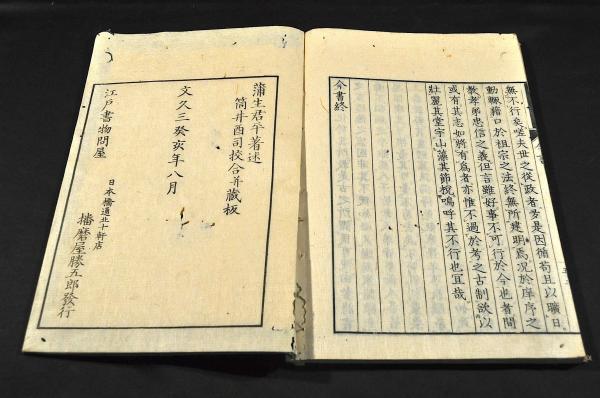 無不行矣嗟夫世之從政者多是因循苟且以曠日
動輒藉口於祖宗之法終無所建明焉况於庠序之
教孝弟忠信之義但言雖好事不可行於今也者間
或有其志如將有爲者亦惟不過於考之古制欲以
壯麗其堂宇山藻其節梲嗚呼其不行也宜哉
今書終
蒲生君平著述
筒井酉司挍合并藏板
文久三癸亥年八月
江戸書物問屋
日本橋通北十軒店
播磨屋勝五郎發行